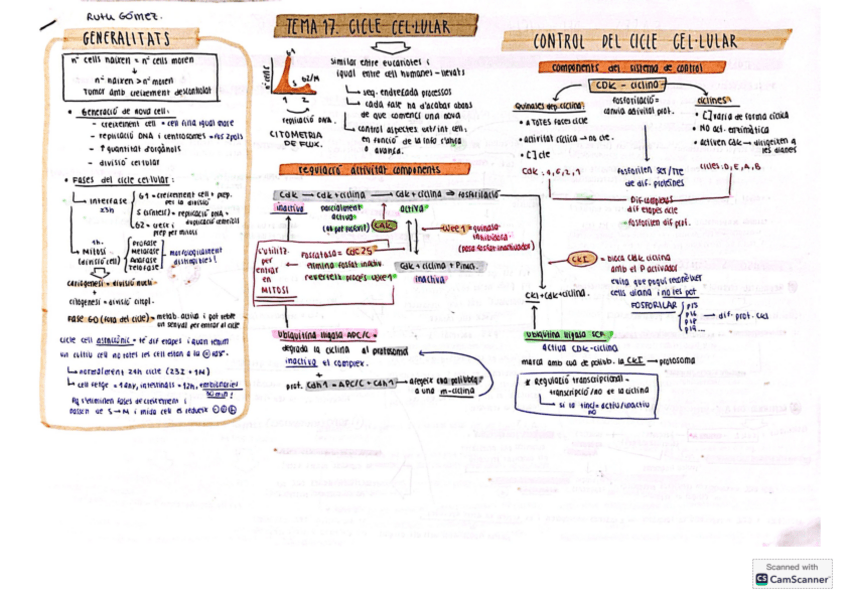 RUTH GÓMEZ.
GENERALITATS
nº cells naixen = nº cells moren
nº naixen > nº moren
Tumor amb creixement descontrolat
• Generació de nova cel:
- creixement cell = cell filla igual mare
- replicació DNA i centrosomes
- ↑ quantitat d'orgànuls
- divisió cel·lular
• Fases del cicle cel·lular:
Interfase
G1 = creixement cell + prep. per la divisió
S (síntesi) = replicació DNA =
G2 = creix i prep per mitosi
1h.
Mitosi
(divisió cell)
Profase
Metafase
Anafase
Telofase
morfològicament distingibles!
cariogènesi = divisió nucli
+
citogènesi = divisió citopl.
Fase G0 (fora del cicle) = metab. activa i pot rebre
un senyal per entrar al cicle
cicle cell asincrònic = té dif etapes i quan veiem
un cultiu cell no totes les cell estan a la
normalment 24h cicle (23I + 1M)
cell fetge = 1 any, intestinals = 12h, embrionàries
30 min!
eliminen fases de creixement i
passen de S → M i mida cell es redueix
TEMA 17. CICLE CEL·LULAR
nº cells
G1
S
G2/M
1 2
replicació DNA
CITOMETRIA
DE FLUX.
similar entre eucariotes i
igual entre cell humanes - llevats
seq. endreçada processos
cada fase ha d'acabar abans
de que comenci una nova
control aspectes ext/int cell:
en funció de la info
avança.
regulació activitat components
Cdk → Cdk + ciclina → Cdk + ciclina → fosforilació
inactiva
parcialment
activa
activa
CAK
Wee 1 = quinasa
inhibidora
(posa fosfat inactivador)
s'utilitza
per
entrar
en
MITOSI
Fosfatasa = Cdc 25
elimina fosfat inactiv.
reverteix procés Wee 1
Cdk + ciclina + P inact.
inactiva
ubiquitina ligasa APC/C =
degrada la ciclina al proteasoma
inactiva el complex.
+
prot. Cdh1 = APC/C + Cdh1 → afegeix cua poliubiq.
a una M-ciclina
CONTROL DEL CICLE CEL·LULAR
components del sistema de control
CDK - ciclina
Quinases dep. ciclina:
• A TOTES fases cicle
• activitat cíclica → no cte.
• [ ] cte
Cdk: 4, 6, 2, 1
fosforilació =
canvia activitat prot.
fosforilen Ser/Thr
de dif. proteïnes
ciclines
• [ ] varia de forma cíclica
• NO act. enzimàtica
• activen Cdk → dirigeixen a
les dianes
cicles: D, E, A, B
Dif complexos
dif etapes cicle
fosforilen dif prot.
CKI = bloca Cdk ciclina
amb el P activador
evita que pugui reconèixer
cells diana i no les pot
FOSFORILAR
p15
p16
p18
p19...
→ dif. prot. CKI
CKI + Cdk + ciclina.
ubiquitina ligasa SCF
activa CDK-ciclina
marca amb cua de poliub. la CKI → protosoma
* Regulació transcripcional =
transcripció/no de la ciclina
si la tinc = actiu/inactiu
no
Scanned with
CS CamScanner